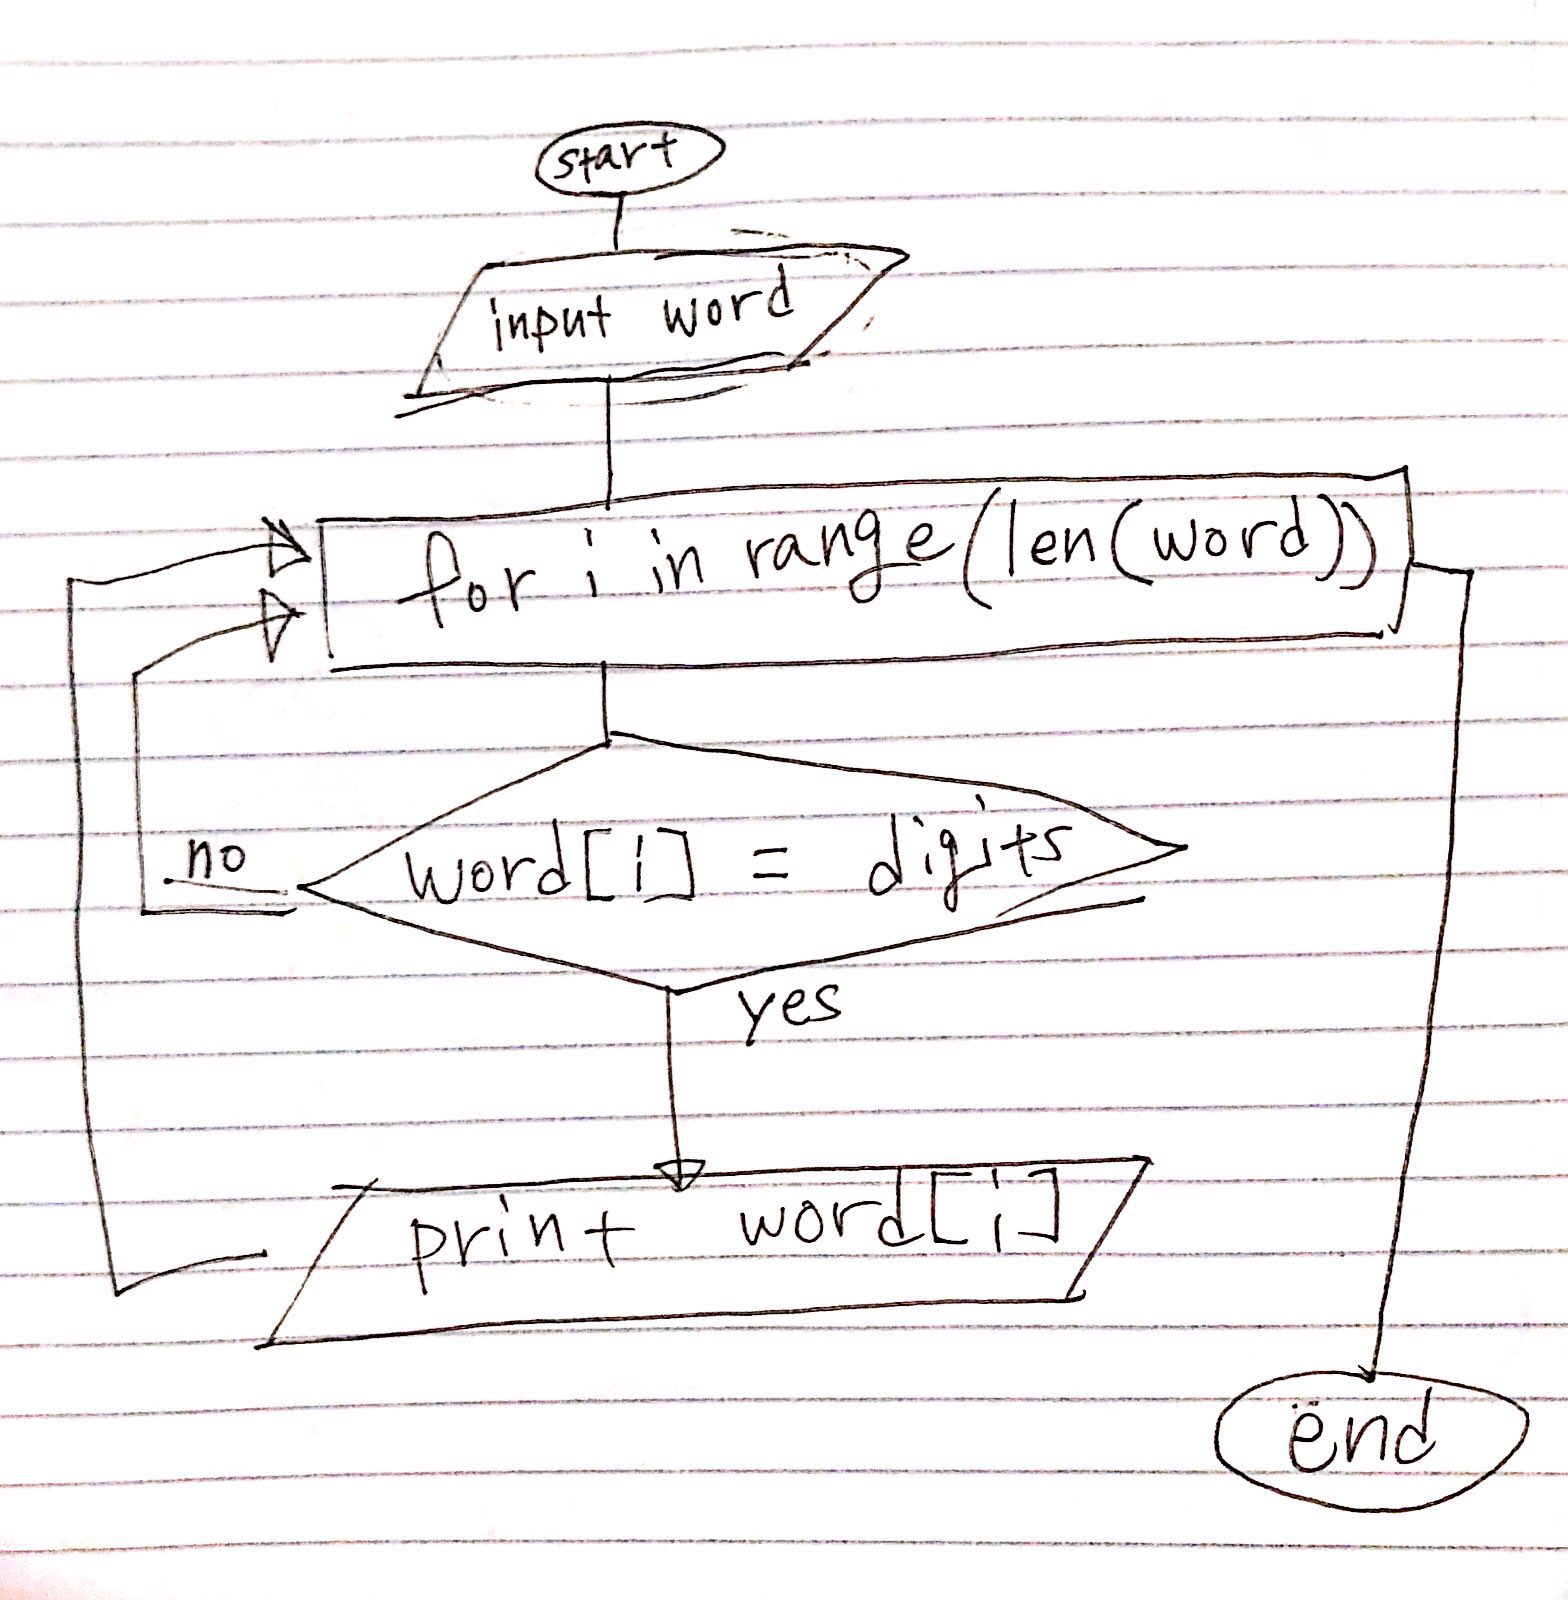 start
input word
for i in range(len(word))
word[i] = digits
no
yes
print word[i]
end